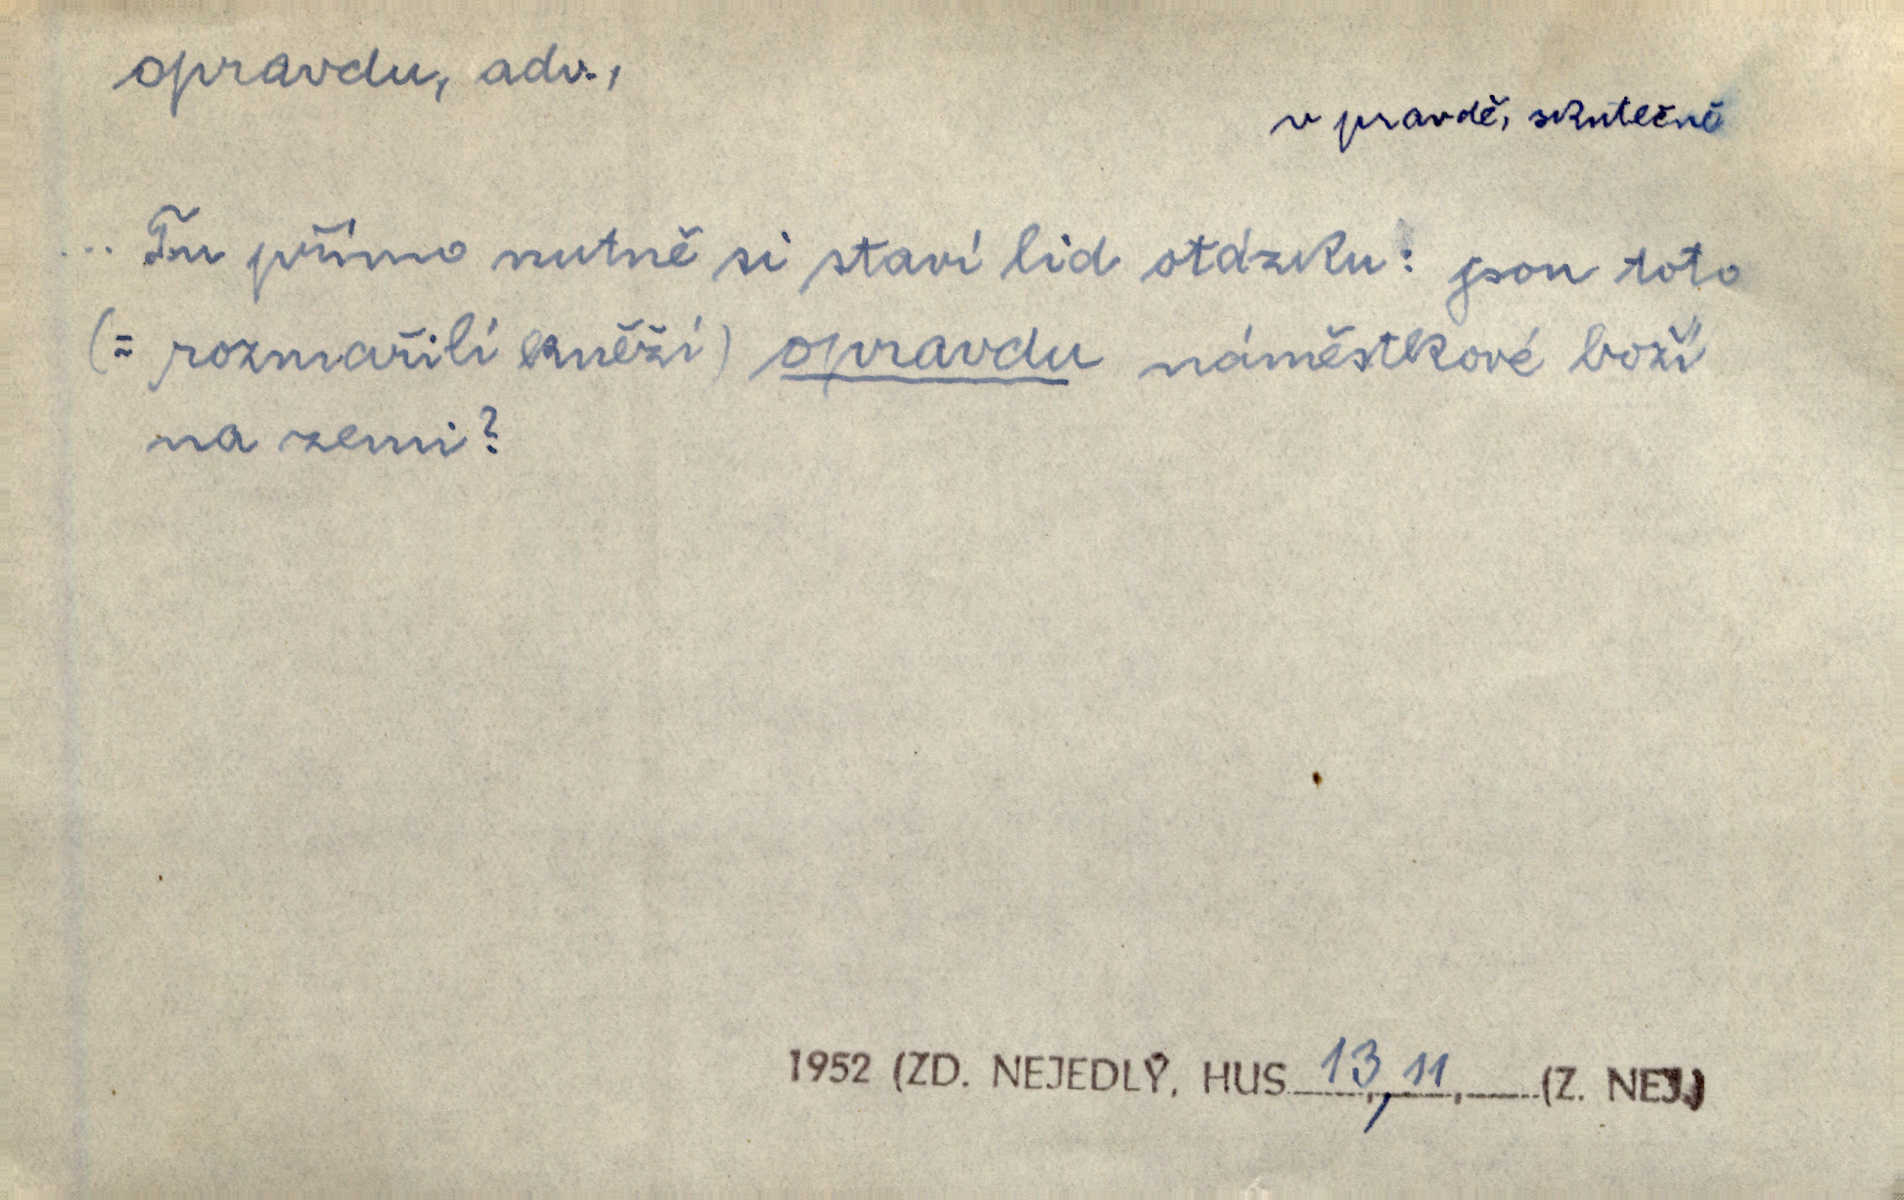 opravdu, adv.,
v pravdě, skutečně
... Tu přímo nutně si staví lid otázku: jsou toto
(= rozmařilí kněží) opravdu náměstkové boží
na zemi?
1952 (ZD. NEJEDLÝ, HUS 13, 11, (Z. NEJ.)